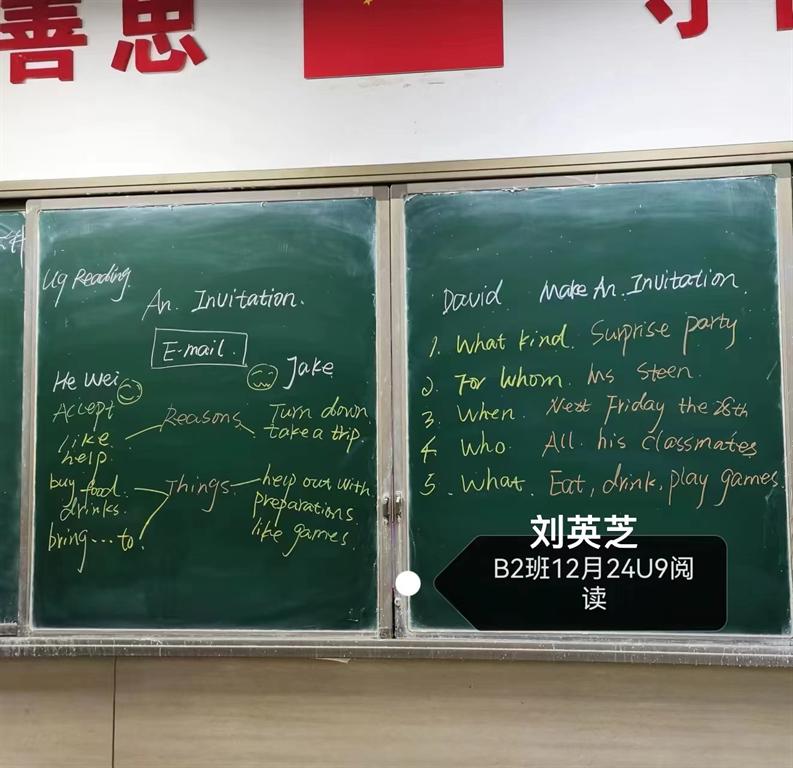 善思
U9 Reading
An Invitation.
E-mail.
He Wei
Jake
Accept
Reasons
Turn down
like
take a trip.
help
buy food
Things
help out with
drinks.
preparations
bring...to.
like games.
David Make An Invitation.
1. What kind. Surprise party
2. For whom. Ms Steen.
3. When. Next Friday the 28th
4. Who All his classmates
5. What. Eat, drink, play games.
刘英芝
B2班12月24U9阅
读